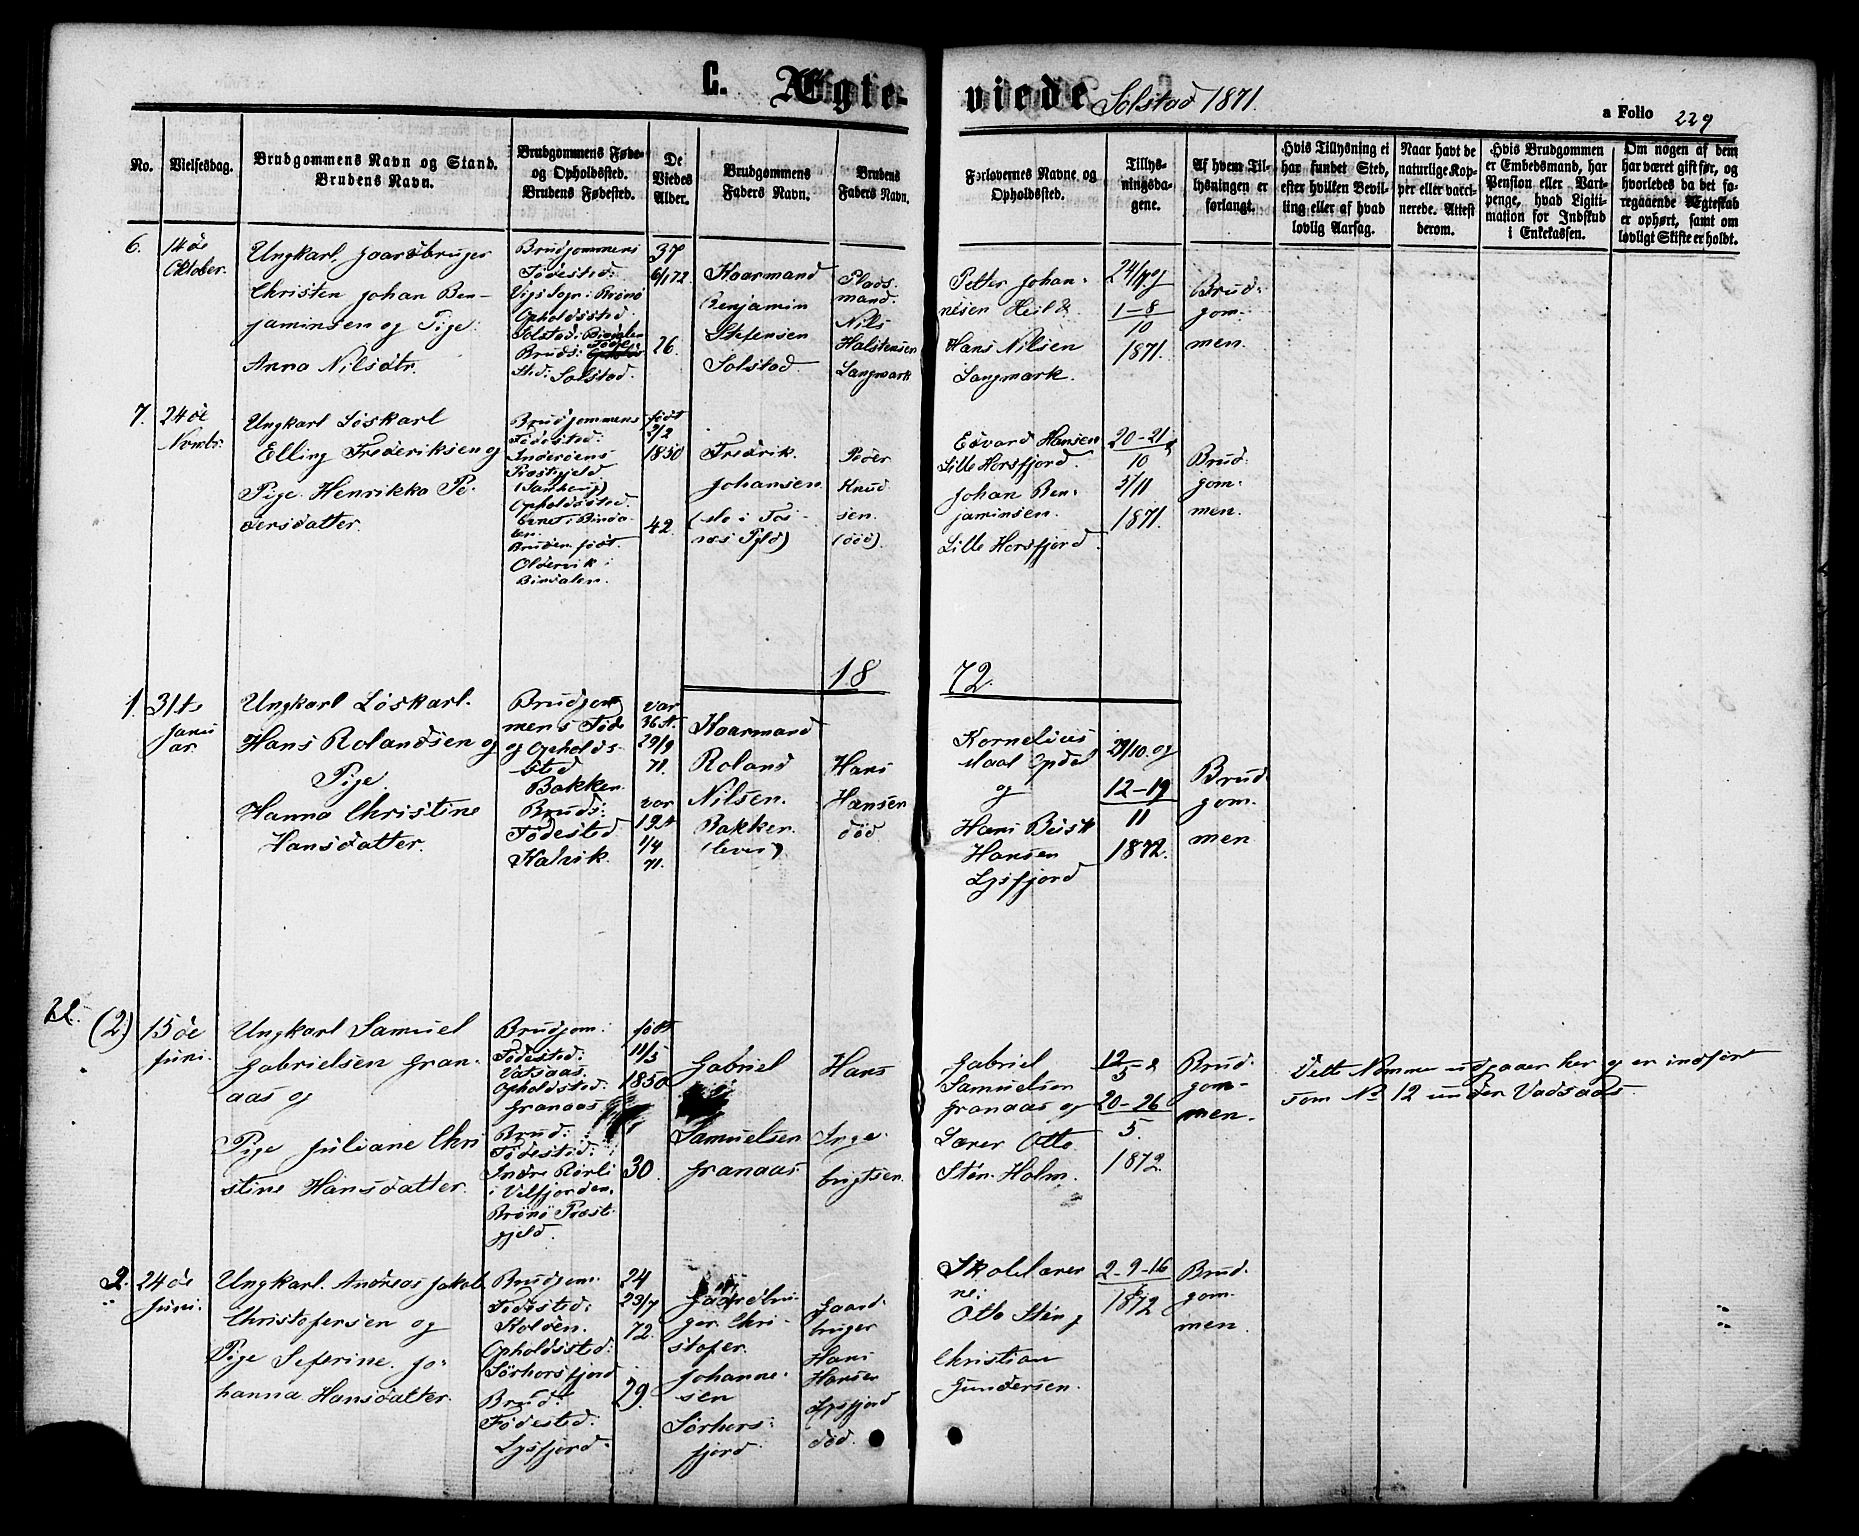 C. Ægte-
viede Solstad 1871.
a Folio 229
No.
Vielsesdag.
Brudgommens Navn og Stand.
Brudens Navn.
Brudgommens Føde-
og Opholdssted.
Brudens Fødested.
De
Viedes
Alder.
Brudgommens
Faders Navn.
Brudens
Faders Navn.
Forlovernes Navne og
Opholdssted.
Tillys-
ningsda-
gene.
Af hvem Til-
lysningen er
forlangt.
Hvis Tillysning ei
har fundet Sted,
efter hvilken Bevil-
ling eller af hvad
lovlig Aarsag.
Naar havt de
naturlige Kop-
per eller vacci-
nerede. Attest
derom.
Hvis Brudgommen
er Embedsmand, har
Pension eller Vart-
penge, hvad Ligiti-
mation for Indskud
i Enkekassen.
Om nogen af dem
har været gift før, og
hvorledes da det fo-
regaaende Ægteskab
er ophørt, samt om
lovligt Skifte er holdt.
6.
14de
Oktober.
Ungkarl, Gaardbruger
Christen Johan Ben-
jaminsen og Pige:
Anna Nilsdtr.
Brudgommens
Fødested:
Vigs Sogn: Brønø
Opholdssted
Solstad: Bindalen
Bruds: Føde-
sted: Solstad.
37
6/1 72
26.
Kaarmand
Benjamin
Stefensen
Solstad
Plads-
mand.
Nils
Halstensen
Langmark
Petter Johan-
nesen Heil &
Hans Nilsen
Langmark.
24/9 og
1-8
10
1871.
Brud-
gom-
men.
7.
24de
Novmbr.
Ungkarl Løskarl
Elling Frederiksen og
Pige Henrikka Pe-
dersdatter.
Brudgommens
Fødested:
Inderøens
Præstegjeld
Opholdssted.
i Binda-
len.
Bruden født.
Oldervik i
Bindalen.
født
2/2
1850
42.
Fredrik
Johansen
Peder
Knud-
sen.
(død).
Edvard Hansen
Lille Horsfjord.
Johan Ben-
jaminsen.
Lille Horsfjord.
20-21 &
10
5/11
1871.
Brud-
gom-
men.
1872.
1.
31te
Janu
ar.
Ungkarl Løskarl.
Hans Rolandsen og
Pige
Hanna Christine
Hansdatter.
Brudgom
mens Føde
og Opholds-
sted
Bakken.
Bruds:
Fødested
Kalvik.
var
36 A.
29/9
71.
var
19 A
1/4
71.
Kaarmand
Roland
Nilsen.
Bakken.
(lever).
Hans
Hansen
død
Kornelius
og
Hansen
Lysfjord
29/10. og
12-19
11
1872.
Brud
gom-
men
(2.)
15de
Juni.
Ungkarl Samuel
Gabrielsen Gran-
aas og
Pige Juliane Chri
stine Hansdatter.
Brudgom:
Fødested:
Vatsaas.
Opholdsted:
Granaas
Brud:
Fødested:
Indre Rørli
i Velfjorden,
Brønø Præst
gjeld.
født
11/5
1850
30.
Gabriel
Samuelsen
Granaas
Hans
Inge-
brigtsen.
Gabriel
Samuelsen
Granaas og
Lærer Otto
Sten Holm.
12 &
5
20-26
5.
1872.
Brud-
gom-
men.
Dette Nommer udgaaer her og er indført
som No 12 under Vadsaas.
2.
24de
Juni.
Ungkarl. Andreas Jakob
Christofersen og
Pige Seferine Jo-
hanna Hansdatter.
Brudgom.
Fødested:
Holden.
Opholdssted:
Sørhorsfjord
Brud:
Fødested:
Lysfjord.
24
23/7
72.
29.
Gaardbru-
ger Chri-
stofer
Johanne-
sen
Sørhors-
fjord.
Gaard-
bruger
Hans
Hansen
Lysfjord
død.
Skolelærer
ne:
Otto Sten &
Christian
Gundersen.
2-9-16
1872
Brud-
gom-
men.